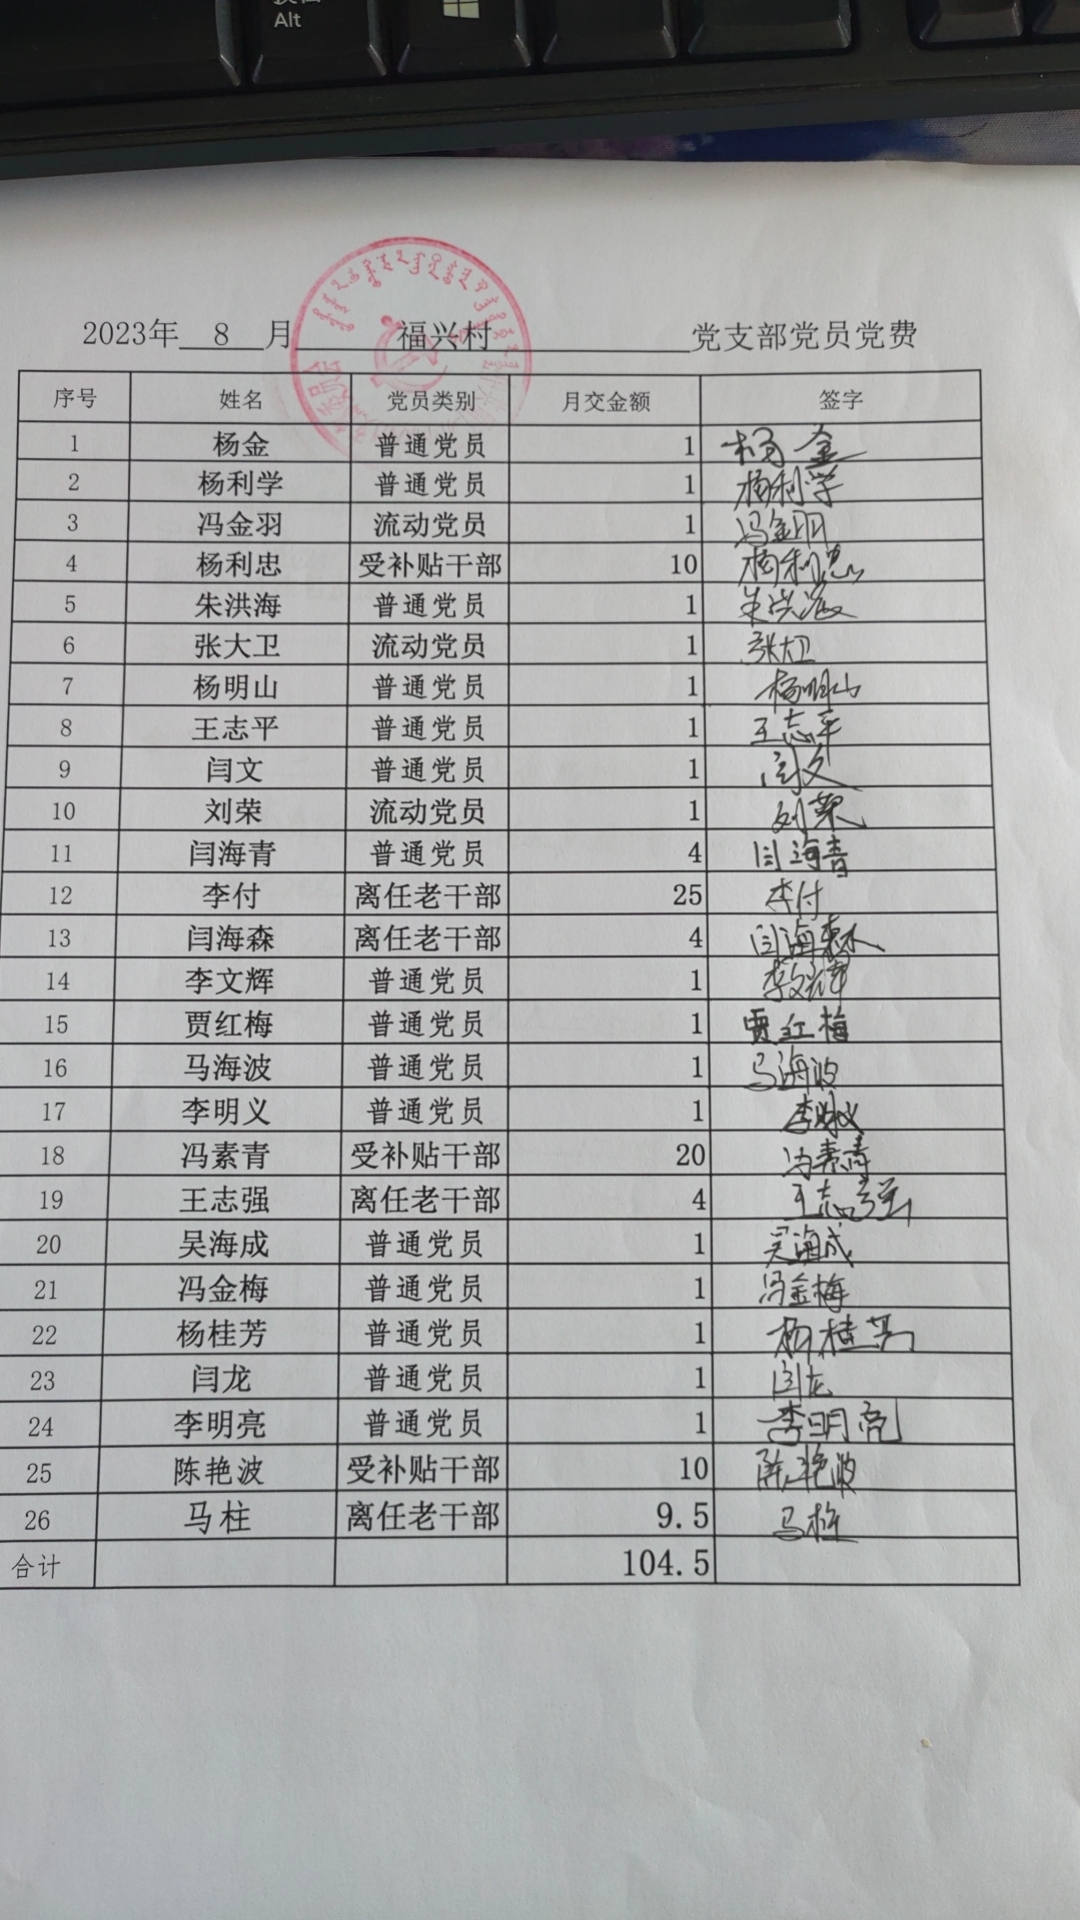 Alt
2023年 8 月 福兴村 党支部党员党费
序号 姓名 党员类别 月交金额 签字
1 杨金 普通党员 1 杨金
2 杨利学 普通党员 1 杨利学
3 冯金羽 流动党员 1 冯金羽
4 杨利忠 受补贴干部 10 杨利忠
5 朱洪海 普通党员 1 朱洪海
6 张大卫 流动党员 1 张大卫
7 杨明山 普通党员 1 杨明山
8 王志平 普通党员 1 王志平
9 闫文 普通党员 1 闫文
10 刘荣 流动党员 1 刘荣
11 闫海青 普通党员 4 闫海青
12 李付 离任老干部 25 李付
13 闫海森 离任老干部 4 闫海森
14 李文辉 普通党员 1 李文辉
15 贾红梅 普通党员 1 贾红梅
16 马海波 普通党员 1 马海波
17 李明义 普通党员 1 李明义
18 冯素青 受补贴干部 20 冯素青
19 王志强 离任老干部 4 王志强
20 吴海成 普通党员 1 吴海成
21 冯金梅 普通党员 1 冯金梅
22 杨桂芳 普通党员 1 杨桂芳
23 闫龙 普通党员 1 闫龙
24 李明亮 普通党员 1 李明亮
25 陈艳波 受补贴干部 10 陈艳波
26 马柱 离任老干部 9.5 马柱
合计 104.5